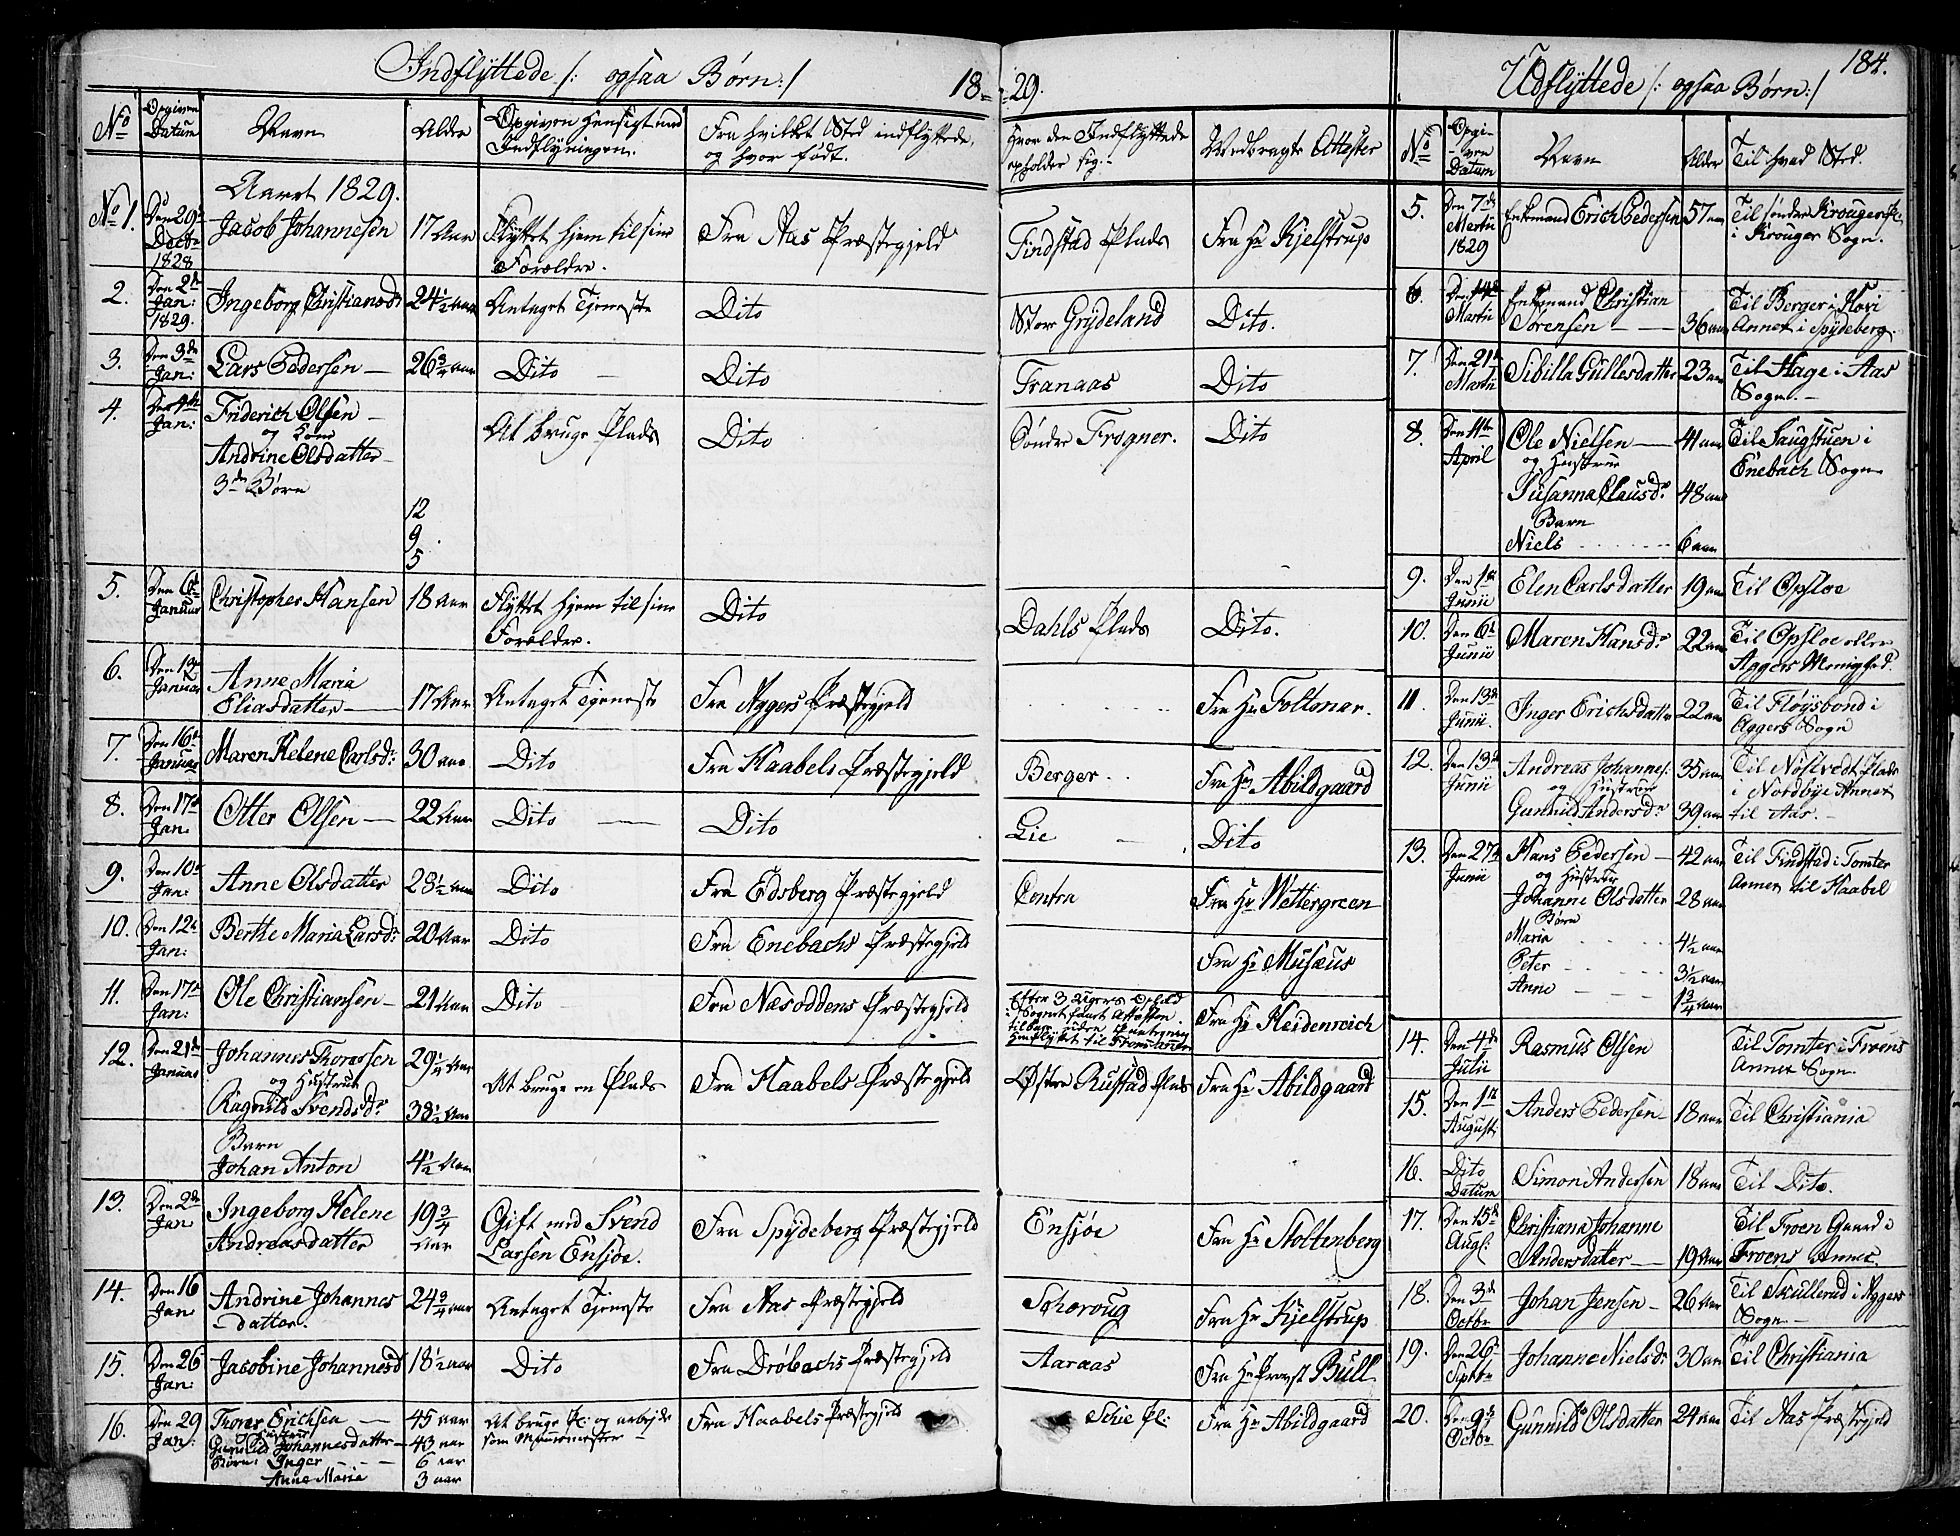 Indflyttede /: ogsaa Børn :/ 18-
No
Opgiven Datum
Navn
Alder
Opgiven Hensigt med Indflytningen.
Fra hvilket Sted indflyttede, og hvor født.
Aaret 1829.
No 1. Den 29de Decbr 1828 Jacob Johannesen 17 Aar Flyttet hjem til sine Forældre. Fra Aas Præstegjeld
2. Den 2den Jan: 1829. Ingeborg Christiansdr 24 1/2 aar Antaget Tjeneste Dito
3. Den 3de Jan: Lars Pedersen 26 3/4 aar Dito Dito
4. Den 4de Jan: Friderich Olsen
og Kone
Andrine Olsdatter
3de Børn
At bruge Plads Dito
12
9
5
5. Den 6te Januar Christopher Hansen 18 Aar Flyttet hjem til sine Forældre. Dito
6. Den 13de Januar Anne Maria Eliasdatter 17 Aar Antaget Tjeneste Fra Aggers Præstegjeld
7. Den 16de Januar Maren Helene Carlsdr: 30 aar Dito Fra Haabels Præstegjeld
8. Den 17de Jan: Otter Olsen 22 Aar Dito Dito
9. Den 10de Jan: Anne Olsdatter 28 1/2 Aar Dito Fra Edsberg Præstegjeld
10. Den 12te Jan: Berthe Maria Larsdr: 20 Aar Dito Fra Enebachs Præstegjeld
11. Den 17de Jan: Ole Christiansen 21 Aar Dito Fra Næsoddens Præstegjeld
12. Den 21de Januar Johannes Thoressen 29 1/4 Aar
og Hustrue
Ragnild Svendsdr 38 1/2 Aar
At bruge en Plads Fra Haabels Præstegjeld
Barn
Johan Anton 4 1/2 Aar
13. Den 2de Jan Ingeborg Helene Andreasdatter 19 3/4 Aar Gift med Svend Larsen Ensjøe. Fra Spydeberg Præstegjeld
14. Den 16 Jan Andrine Johannesdatter. 24 3/4 aar Antaget Tjeneste Fra Aas Præstegjeld
15. Den 26 Jan: Jacobine Johannesd 18 1/2 aar Dito Fra Drøbachs Præstegjeld
16. Den 29 Jan: Thorer Erichsen 45 aar
og Hustrue
Gunild Johannesdatter 43 aar
Børn: Inger 6 aar
Anne Maria 3 aar
At bruge Pl: og arbejde som Muurmester Fra Haabels Præstegjeld
29.
Hvor den Indflyttede opholder sig.
Medbragte Attester
Findstad Plads Fra Hr Kjelstrup
Store Grydeland Dito.
Franaas Dito
Søndre Frogner. Dito
Dahls Plads Dito.
Fra Hr Foltmar.
Berger Fra Hr Abildgaard
Lie Dito
Contra Fra Hr Wettergreen
Fra Hr Musæus
Efter 3 Ugers Ophold i Sognet Fra Hr Heidenreich
Østere Rustad Plads Fra Hr Abildgaard
Ensjøe Fra Hr Stoltenberg
Schoroug Fra Hr Kjelstrup
Aaraas Fra Hr Provst Bull
Schie Pl: Fra Hr Abildgaard
184.
Udflyttede /: ogsaa Børn :/
No
Opgiven Datum
Navn
Alder
Til hvad Sted.
5. Den 7de Martii 1829 Enkemand Erich Pedersen 57 aar Til søndre Krouger Pl: i Krouger Sogn.
6. Den 14de Martii Enkemand Christian Sørensen 36 aar Til Berger i Hovi Annex i Spydeberg.
7. Den 21de Martii Sibilla Gullesdatter 23 aar Til Hage i Aas Sogn.
8. Den 11te April Ole Nielsen 41 aar
og Hustrue
Susanna Clausdr 48 aar
Barn
Niels 6 aar
Til Saugstuen i Enebach Sogn
9. Den 1ste Junii Elen Carlsdatter 19 aar Til Opsloe
10. Den 6te Junii Maren Hansdr 22 aar Til Opsloe eller Aggers Menighed.
11. Den 13de Junii Inger Erichsdatter 22 aar Til Fløysbond i Aggers Sogn
12. Den 13de Junii Andreas Johannes: 35 aar
og Hustrue
Gunnild Andersdr 39 aar
Til Nøstvedt Plads i Nordbye Annex til Aas.
13. Den 27de Junii Hans Pedersen 42 aar
og Hustrue
Johanne Olsdatter 28 aar
Børn
Maria 4 1/2 aar
Peter 3 1/2 aar
Anne 1 3/4 Aar
Til Findstad i Tomter Annex til Haabel
14. Den 4de Julii Rasmus Olsen Til Tomter i Froens Annex Sogn.
15. Den 1ste August Anders Pedersen 18 aar Til Christiania
16. Dito Datum Simon Andersen 18 aar Til Dito.
17. Den 15de Augs: Christiane Johanne Andersdatter 19 Aar Til Froen Gaard i Froens Annex.
18. Den 3de Octbr Johan Jensen 26 Aar Til Skullerud i Aggers Sogn
19. Den 26 Septbr Johanne Nielsdr 30 aar Til Christiania
20. Den 9de Octbr Gunnild Olsdatter 24 Aar Til Aas Præstegjeld